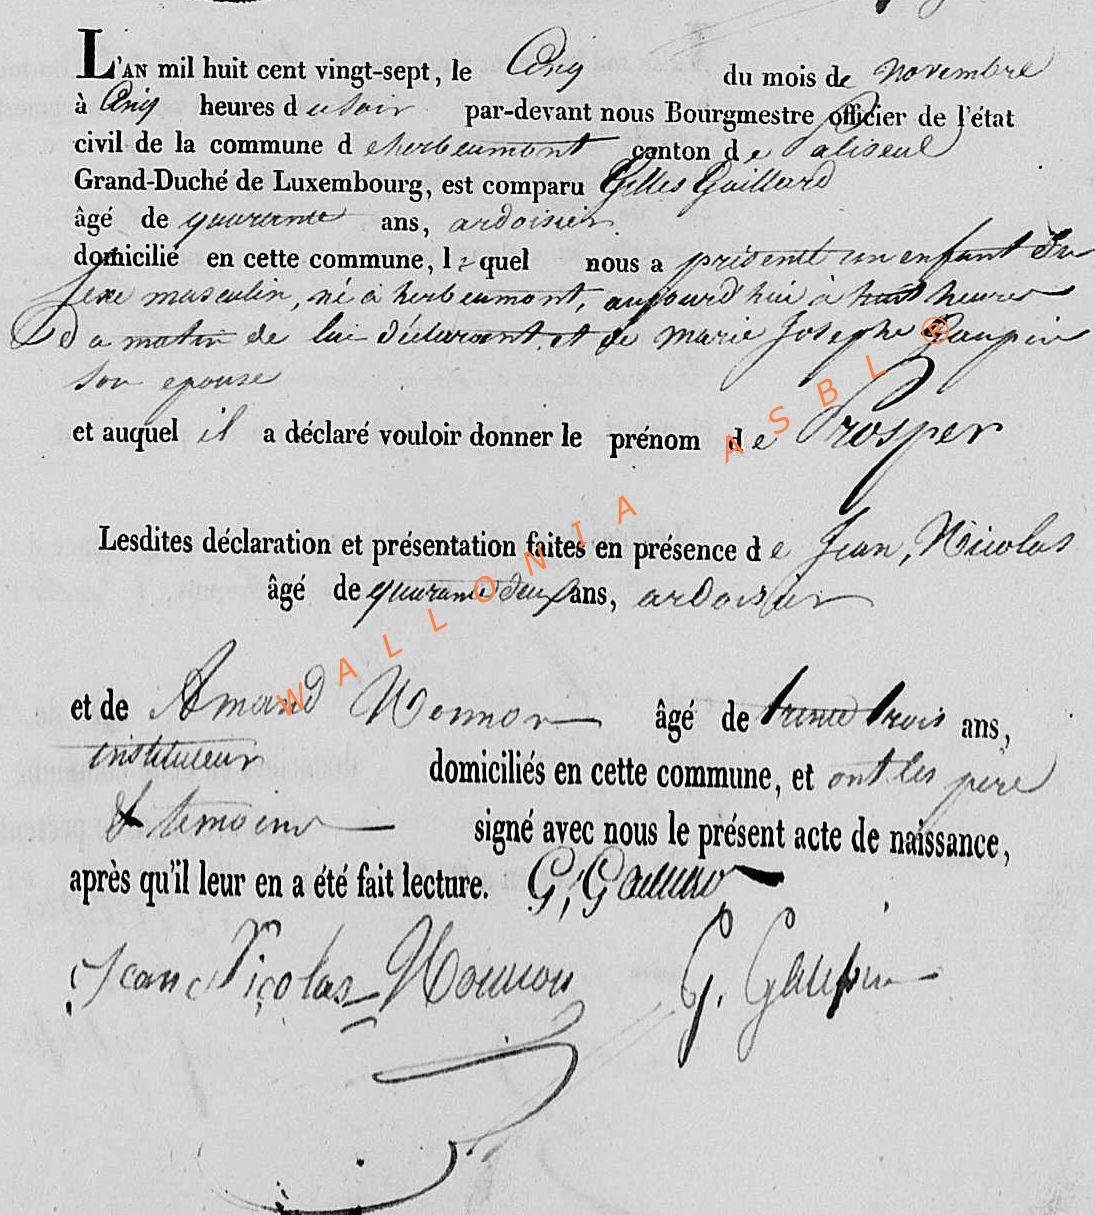 L'AN mil huit cent vingt-sept, le Cinq du mois de novembre
à Cinq heures d u soir par-devant nous Bourgmestre officier de l'état
civil de la commune d e herbeumont canton d e Paliseul
Grand-Duché de Luxembourg, est comparu Gilles Gaillard
âgé de quarante ans, ardoisier
domicilié en cette commune, l e quel nous a présenté un enfant du
sexe masculin, né à herbeumont, aujourd'hui à huit heures
du matin de lui déclarant et de marie Josephe Gaupin
son epouse
et auquel il a déclaré vouloir donner le prénom d e Prosper
Lesdites déclaration et présentation faites en présence d e Jean, Nicolas
âgé de quarante deux ans, ardoisier
et de Amand âgé de trente trois ans,
instituteur domiciliés en cette commune, et ont les pere
& temoins signé avec nous le présent acte de naissance,
après qu'il leur en a été fait lecture. G, Gaillard
Jean Nicolas G. Gaupin
WALLONIA ASBL ®